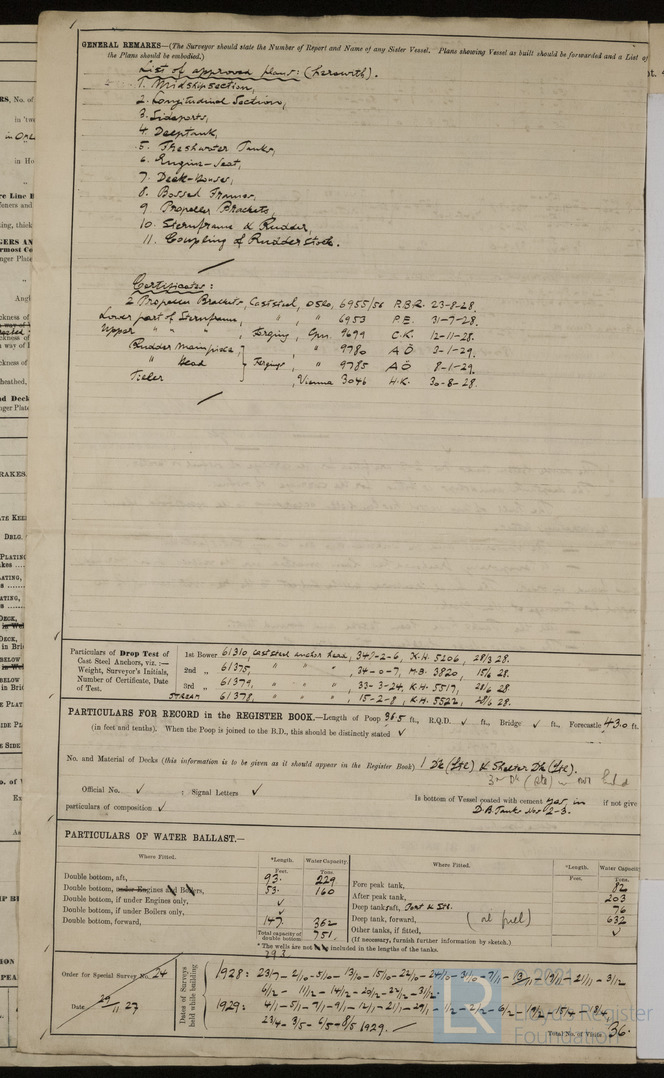 GENERAL REMARKS—(The Surveyor should state the Number of Report and Name of any Sister Vessel. Plans showing Vessel as built should be forwarded and a List of
the Plans should be embodied.)
List of approved plans: (herewith).
1. Midshipsection,
2. Longitudinal Section,
3. Sideports,
4. Deeptank,
5. Freshwater Tanks,
6. Engine-seat,
7. Deck-houses,
8. Bossed Frames,
9. Propeller Brackets,
10. Sternframe & Rudder,
11. Coupling of Rudder Stock.
Certificates:
2 Propeller Brackets, Cast steel, Oslo, 6955/56 R.B.R. 23-8-28.
Lower part of Sternframe, " " 6953 P.E. 31-7-28.
Upper " " " , Forging, Gn. 9699 C.K. 12-11-28.
Rudder Mainpiece, " 9780 AÖ 3-1-29.
" Head } Forgings, " 9785 AÖ 8-1-29.
Tieler , Vienna 3046 H.K. 30-8-28.
Particulars of Drop Test of Cast Steel Anchors, viz.:— Weight, Surveyor's Initials, Number of Certificate, Date of Test.
1st Bower 61310, cast steel anchor head, 34-2-6, K.H. 5206, 28/3 28.
2nd " 61375, " " " , 34-0-7, M.B. 3820, 15/6 28.
3rd " 61379, " " " , 33-3-24, K.H. 5517, 28/6 28.
STREAM 61378, " " " , 15-2-8, K.H. 5522, 28/6 28.
PARTICULARS FOR RECORD in the REGISTER BOOK.—Length of Poop 36.5 ft., R.Q.D. ✓ ft., Bridge ✓ ft., Forecastle 43.0 ft.
(in feet and tenths). When the Poop is joined to the B.D., this should be distinctly stated ✓
No. and Material of Decks (this information is to be given as it should appear in the Register Book) 1 Dk (Stl) & Shelter Dk (Stl).
3rd Dk (Stl) in
Official No. ✓ ; Signal Letters ✓ Is bottom of Vessel coated with cement yes, in if not give
particulars of composition ✓ D.B. Tanks Nos 2-3.
PARTICULARS OF WATER BALLAST.—
Where Fitted. *Length. Water Capacity. Where Fitted. *Length. Water Capacity
Feet. Tons. Feet. Tons.
Double bottom, aft, 93. 229 Fore peak tank, 82
Double bottom, under Engines and Boilers, 53. 160 After peak tank, 203
Double bottom, if under Engines only, ✓ Deep tank, aft, Port & Stb. 76
Double bottom, if under Boilers only, ✓ Deep tank, forward, (oil fuel) 632
Double bottom, forward, 147. 362 Other tanks, if fitted, ✓
Total capacity of double bottom 751. (If necessary, furnish further information by sketch.)
* The wells are not to be included in the lengths of the tanks.
293
Order for Special Survey No. 24
Date 29/11 27
Dates of Surveys held while building
1928: 23/7 - 2/10 - 5/10 - 13/10 - 15/10 - 22/10 - 24/10 - 31/10 - 7/11 - 13/11 - 19/11 - 21/11 - 3/12
6/12 - 11/12 - 14/12 - 20/12 - 22/12 - 31/12.
1929: 4/1 - 5/1 - 7/1 - 9/1 - 12/1 - 21/1 - 29/1 - 1/2 - 2/2 - 6/2 - 19/2 - 15/4 - 18/4,
23/4 - 3/5 - 6/5 - 8/5 1929.
Total No. of Visits 36.
© 2021
LR
Lloyd's Register
Foundation